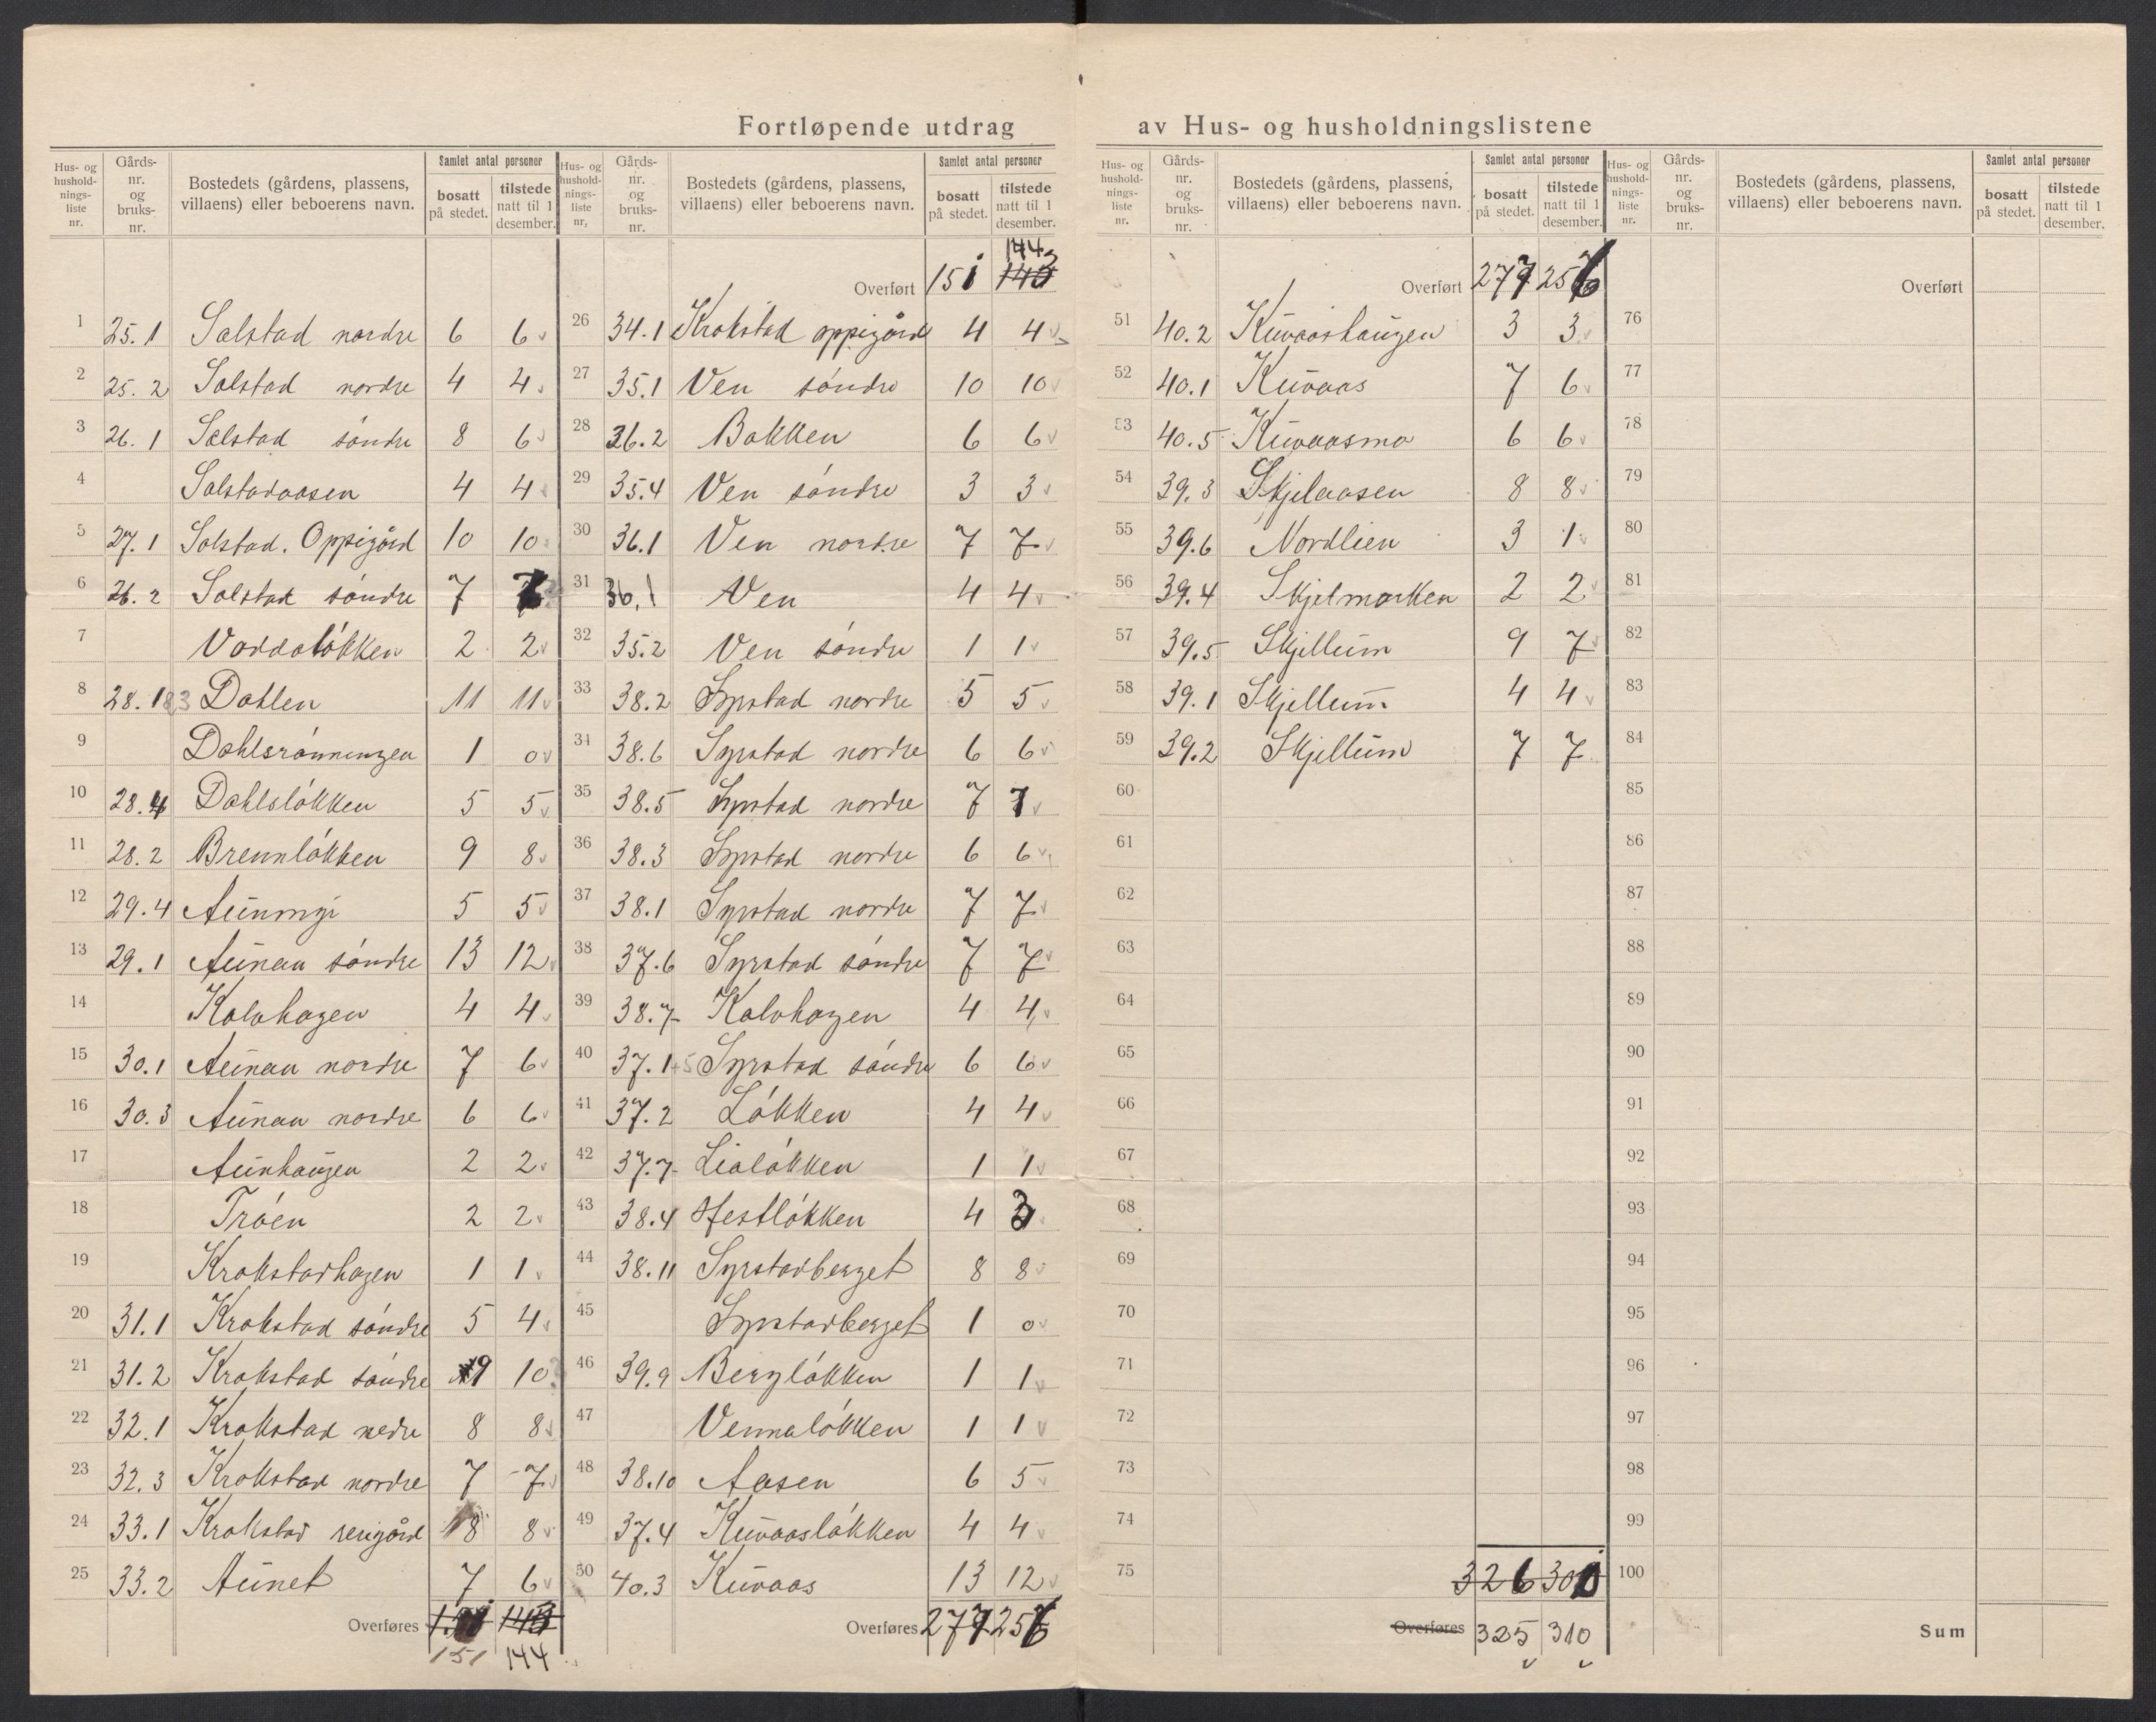 Fortløpende utdrag av Hus- og husholdningslistene
Hus- og hushold-nings-liste nr. | Gårds-nr. og bruks-nr. | Bostedets (gårdens, plassens, villaens) eller beboerens navn. | Samlet antal personer | bosatt på stedet. | tilstede natt til 1 desember.
1 25.1 Solstad nordre 6 6
2 25.2 Solstad nordre 4 4
3 26.1 Solstad søndre 8 6
4 Solstadaasen 4 4
5 27.1 Solstad. Oppigård 10 10
6 26.2 Solstad søndre 7
7 Voddaløkken 2 2
8 28.1&3 Dahlen 11 11
9 Dahlsrønningen 1 0
10 28.4 Dahlsløkken 5 5
11 28.2 Brennløkken 9 8
12 29.4 Aunmyr 5 5
13 29.1 Aunan søndre 13 12
14 Kalvhagen 4 4
15 30.1 Aunan nordre 7 6
16 30.3 Aunan nordre 6 6
17 Aunhaugen 2 2
18 Trøen 2 2
19 Krokstadhagen 1 1
20 31.1 Krokstad søndre 5 4
21 31.2 Krokstad søndre 9 10
22 32.1 Krokstad nedre 8 8
23 32.3 Krokstad nordre 7 7
24 33.1 Krokstad 8 8
25 33.2 Aunet 7 6
Overføres
151 144
Overført 151 144
26 34.1 Krokstad oppigård 4 4
27 35.1 Ven søndre 10 10
28 36.2 Bakken 6 6
29 35.4 Ven søndre 3 3
30 36.1 Ven nordre 7 7
31 36.1 Ven 4 4
32 35.2 Ven søndre 1 1
33 38.2 Syrstad nordre 5 5
34 38.6 Syrstad nordre 6 6
35 38.5 Syrstad nordre 7 7
36 38.3 Syrstad nordre 6 6
37 38.1 Syrstad nordre 7 7
38 37.6 Syrstad søndre 7 7
39 38.7 Kalvhagen 4 4
40 37.1+5 Syrstad søndre 6 6
41 37.2 Løkken 4 4
42 37.7 Lialøkken 1 1
43 38.4 Hestløkken 4 3
44 38.11 Syrstadberget 8 8
45 Syrstadberget 1 0
46 39.9 Bergløkken 1 1
47 Vennaløkken 1 1
48 38.10 Aasen 6 5
49 37.4 Kuvaasløkken 4 4
50 40.3 Kuvaas 13 12
Overføres 277 256
Overført 277 256
51 40.2 Kuvaashaugen 3 3
52 40.1 Kuvaas 7 6
53 40.5 Kuvaasmo 6 6
54 39.3 Skjelaasen 8 8
55 39.6 Nordlien 3 1
56 39.4 Skjelmarken 2 2
57 39.5 Skjellum 9 7
58 39.1 Skjellum 4 4
59 39.2 Skjellum 7 7
60
61
62
63
64
65
66
67
68
69
70
71
72
73
74
75 326 300
Overføres 325 310
Overført
76
77
78
79
80
81
82
83
84
85
86
87
88
89
90
91
92
93
94
95
96
97
98
99
100
Sum